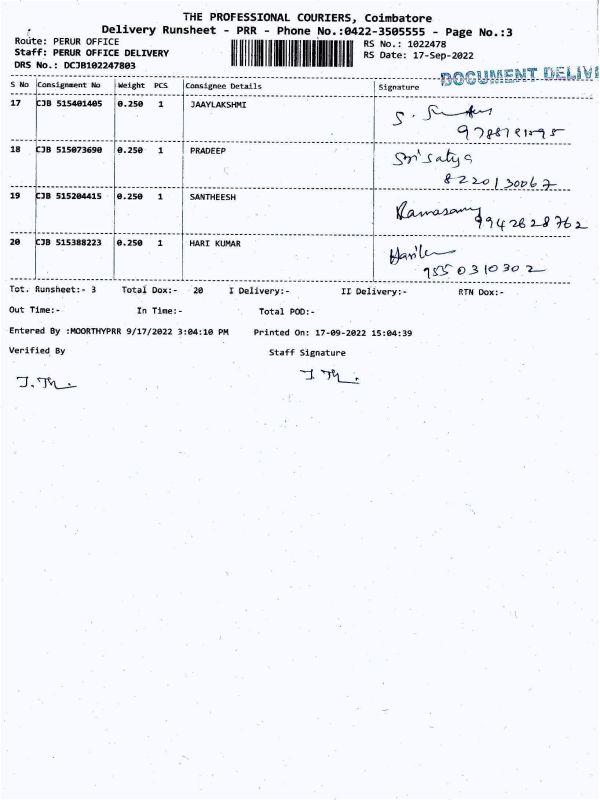 THE PROFESSIONAL COURIERS, Coimbatore
Delivery Runsheet - PRR - Phone No.:0422-3505555 - Page No.:3
Route: PERUR OFFICE RS No.: 1022478
Staff: PERUR OFFICE DELIVERY RS Date: 17-Sep-2022
DRS No.: DCJB102247803
DOCUMENT DELIV
S No Consignment No Weight PCS Consignee Details Signature
17 CJB 515401405 0.250 1 JAAYLAKSHMI
18 CJB 515073690 0.250 1 PRADEEP Sri Satya
8220130067
19 CJB 515204415 0.250 1 SANTHEESH Ramasamy
9942628762
20 CJB 515388223 0.250 1 HARI KUMAR
9550310302
Tot. Runsheet:- 3 Total Dox:- 20 I Delivery:- II Delivery:- RTN Dox:-
Out Time:- In Time:- Total POD:-
Entered By :MOORTHYPRR 9/17/2022 3:04:10 PM Printed On: 17-09-2022 15:04:39
Verified By Staff Signature